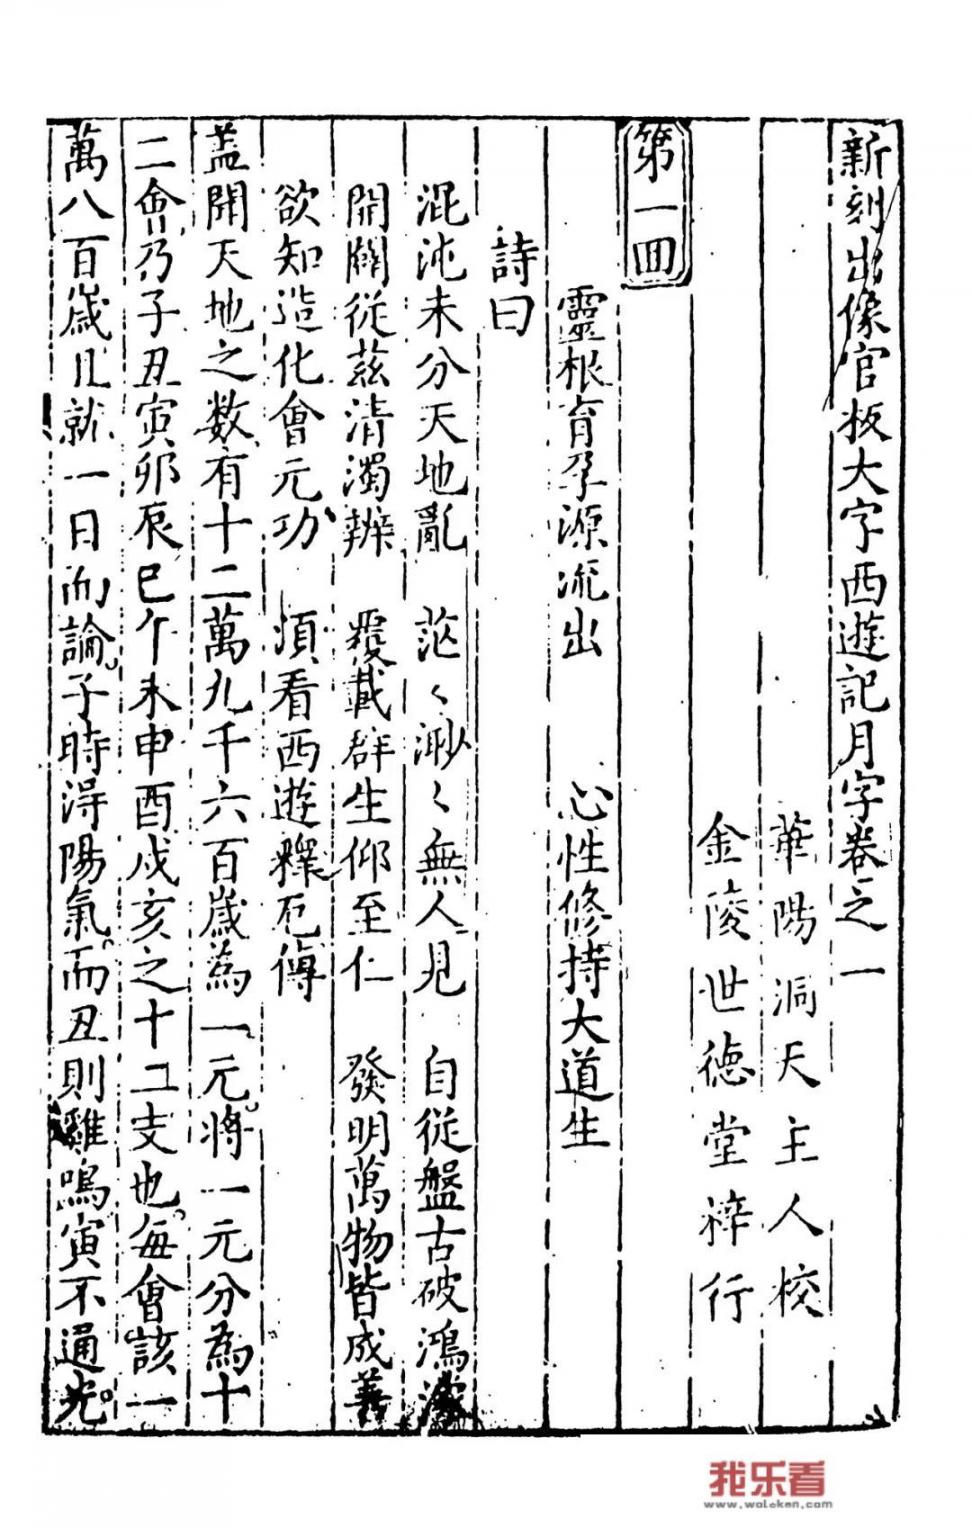 新刻出像官板大字西遊記月字卷之一
華陽洞天主人校
金陵世德堂梓行
第一囬
靈根育孕源流出　心性修持大道生
詩曰
混沌未分天地亂　茫〻渺〻無人見　自從盤古破鴻濛
開闢從茲清濁辨　覆載群生仰至仁　發明萬物皆成善
欲知造化會元功　須看西遊釋厄傳
盖聞天地之数有十二萬九千六百歲為一元。將一元分為十
二會乃子丑寅卯辰巳午未申酉戌亥之十二支也。每會該一
萬八百歲且就一日而論。子時得陽氣。而丑則雞鳴寅不通光。
我乐看
www.woleken.com